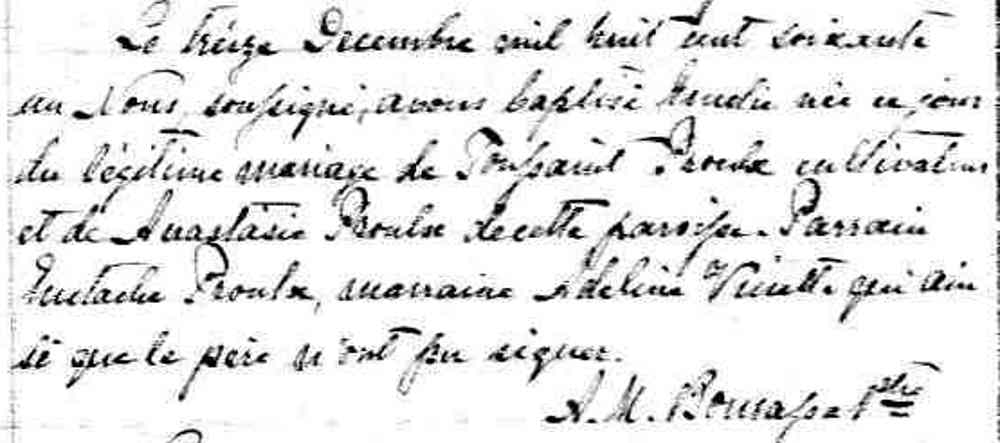 Le treize Decembre mil huit cent soixante
un Nous, soussigné, avons baptisé née ce jour
du légitime mariage de Toussaint Proulx cultivateur
et de Anastasie Proulx de cette paroisse. Parrain
Eustache Proulx, marraine Adeline qui ain
si que le père n'ont pu signer.
A. M. Bourassa Ptre